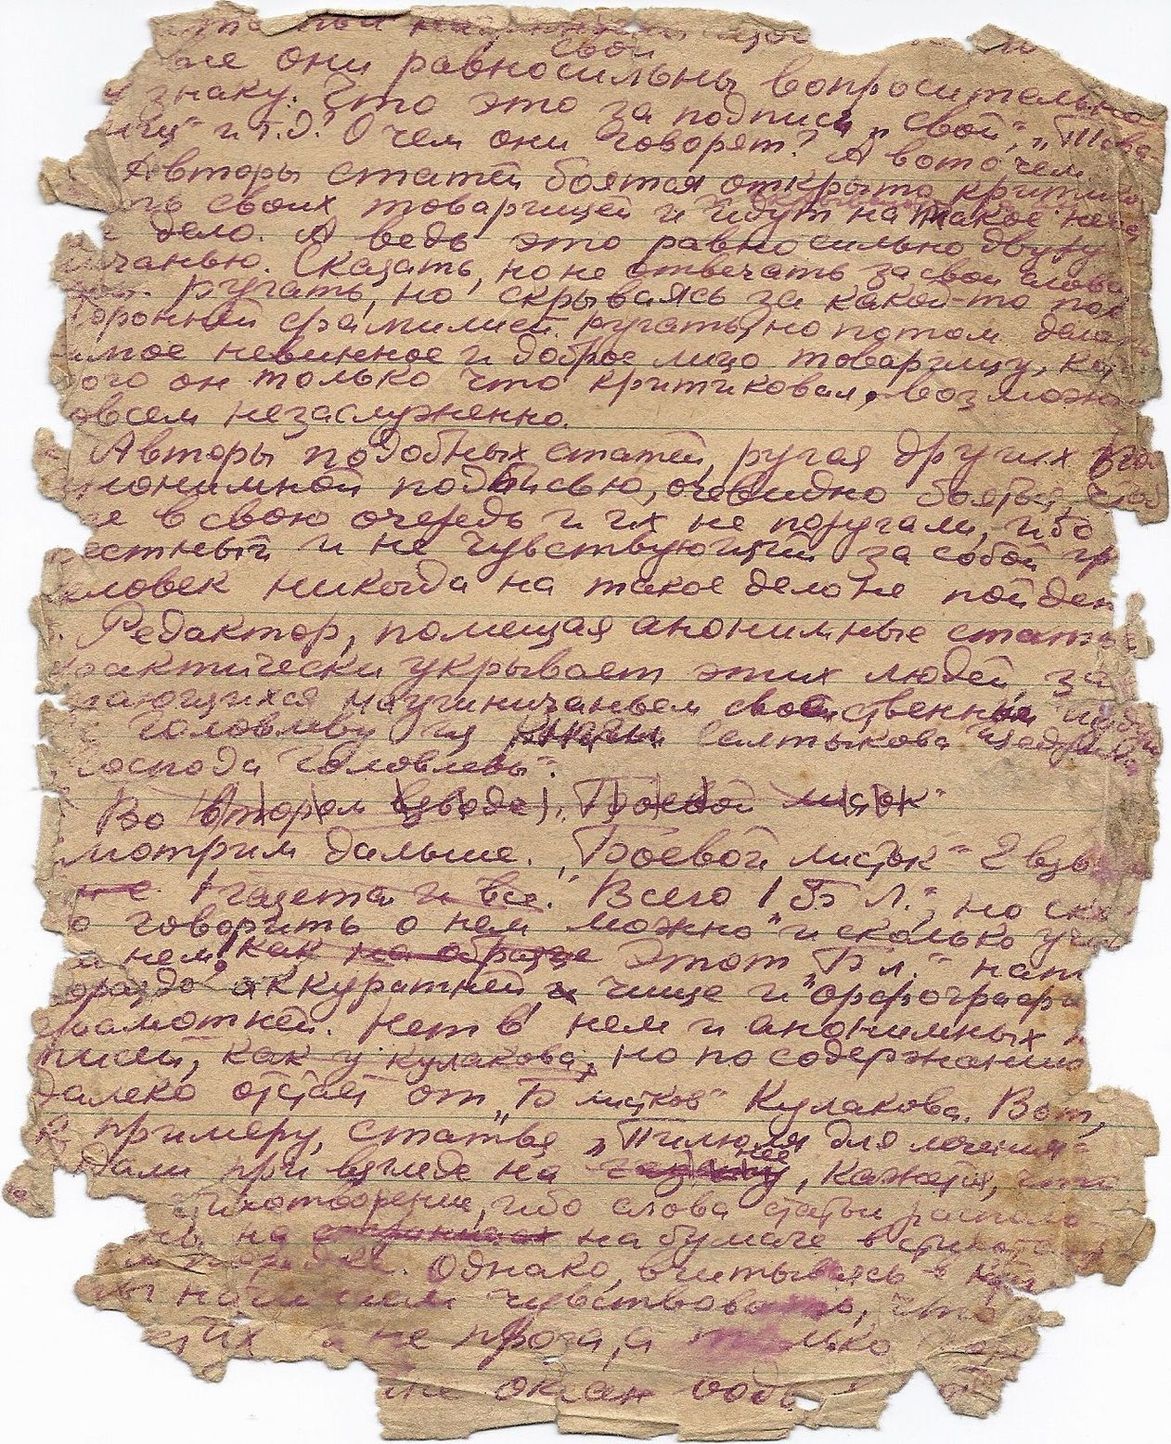 свои
они равносильны вопросительно
знаку. Что это за подпись „свой“, „Това
и т.д. О чем они говорят? А вот о чем
Авторы статей боятся открыто критико
ть своих товарищей и идут на такое
дело. А ведь это равносильно двуру
чанью. Сказать, но не отвечать за свои слова
ругать, но скрываясь за какой-то пос
оронней фамилией. ругать, но потом дела
мое невинное и доброе лицо товарищу, ко
ого он только что критиковал, возможно
овсем незаслуженно.
Авторы подобных статей, ругая других
нонимной подписью, очевидно боятся, что
е в свою очередь и их не поругали, ибо
естный и не чувствующий за собой гр
еловек никогда на такое дело не пойдет
Редактор, помещая анонимные стат
рактически укрывает этих людей, за
ающихся
Головлеву из Салтыкова Щедрина
„Господа Головлевы“.
Во втором взводе, „Боевой листок“
мотрим дальше. „Боевой листок“ 2 взв
1 газета и все. Всего 1 „Б Л.“, но ск
о говорить о нем можно и сколько уч
и нем, как на образце Этот „Б л.“ нам
ораздо аккуратней, и чище и орфографи
рамотней. Нет в нем и анонимных
писей, как у кулакова, но по содержанию
далеко отстает от „Б листков“ Кулакова. Вот,
к примеру, статья „Пилюля для лечения“
дали при взгляде на нее, кажется, что
стихотворение, ибо слова статьи распола
ны на страницах на бумаге в стихот
порядке. Однако, вчитываясь в
ты начинаем чувствовать, что
стих и не проза, а только
океан воды